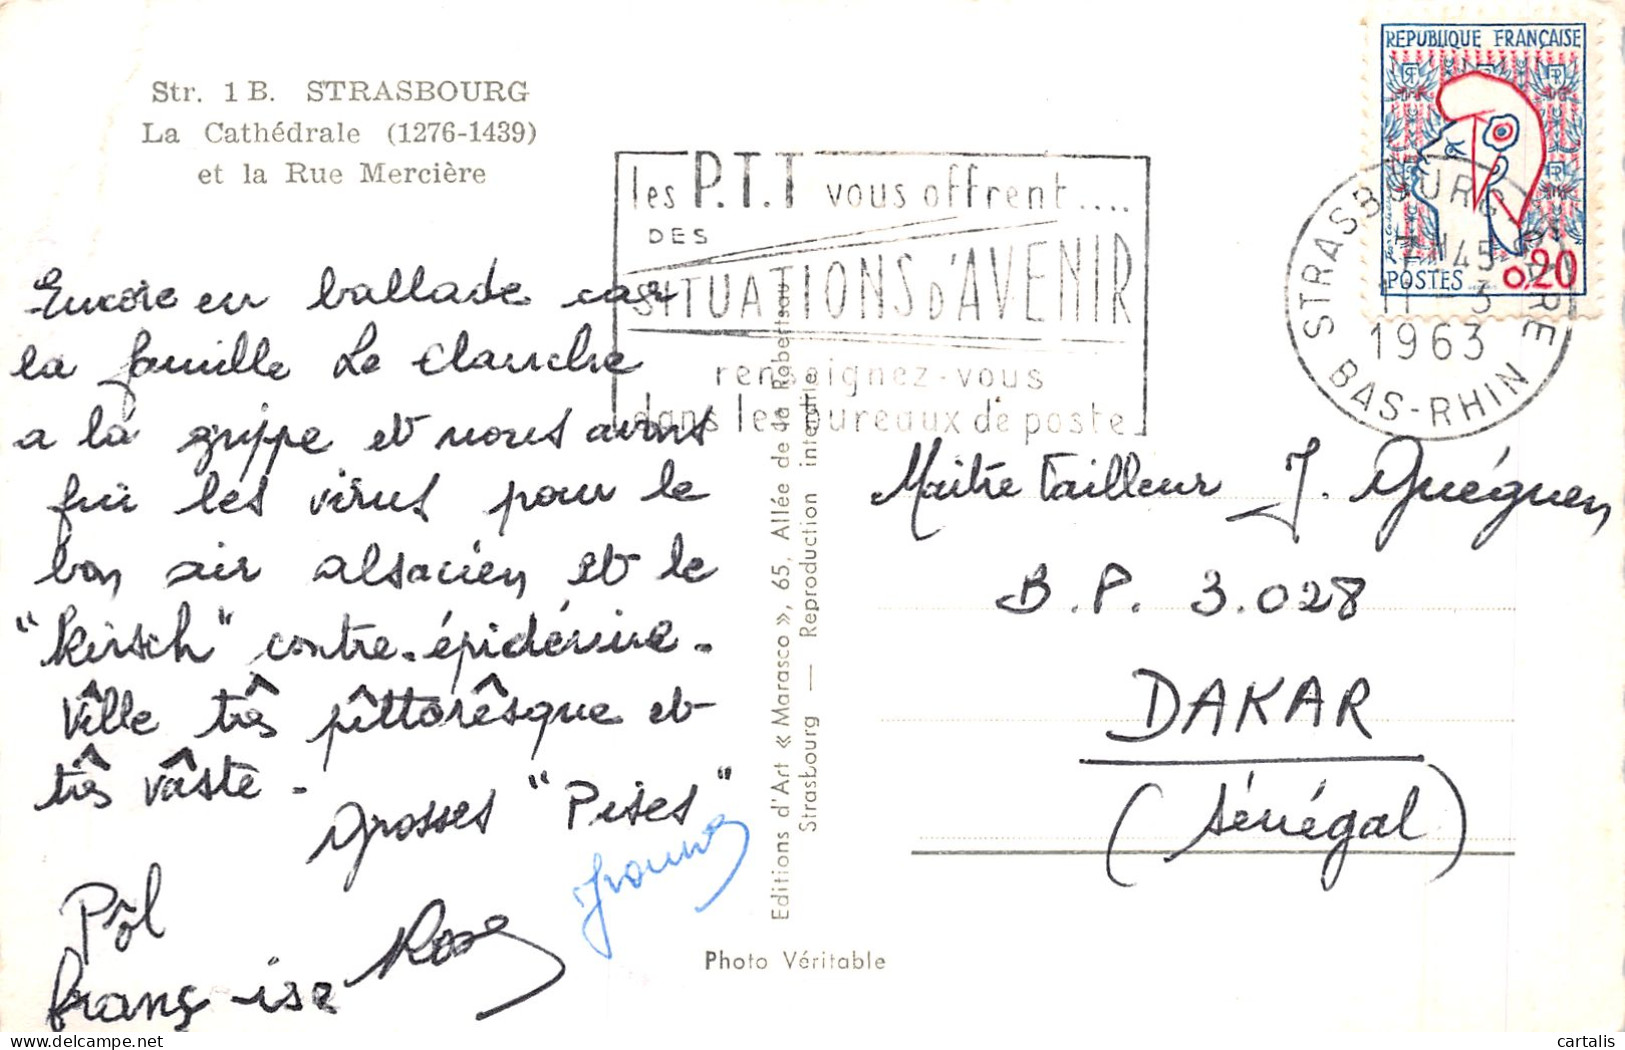 Str. 1 B. STRASBOURG
La Cathédrale (1276-1439)
et la Rue Mercière
les P.T.T vous offrent....
DES
SITUATIONS D'AVENIR
renseignez-vous
dans les bureaux de poste
REPUBLIQUE FRANÇAISE
POSTES 0,20
STRASBOURG GARE
1963
BAS-RHIN
Encore en ballade car
la famille Le Clanche
a la grippe et nous avons
fui les virus pour le
bon air alsacien et le
"Kirsch" contre-épidémie.
Ville très pîttorêsque et
três vâste.
Grosses "Pises"
Pôl
Franç-ise
Rose
Maitre tailleur J. Guéguen
B.P. 3.028
DAKAR
(Sénégal)
Editions d'Art « Marasco », 65, Allée de la Robertsau
Strasbourg — Reproduction interdite
Photo Véritable
cartalis
delcampe.net